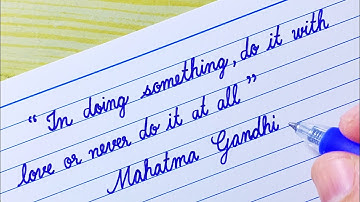 “ In doing something, do it with
love or never do it at all ”
Mahatma Gandhi